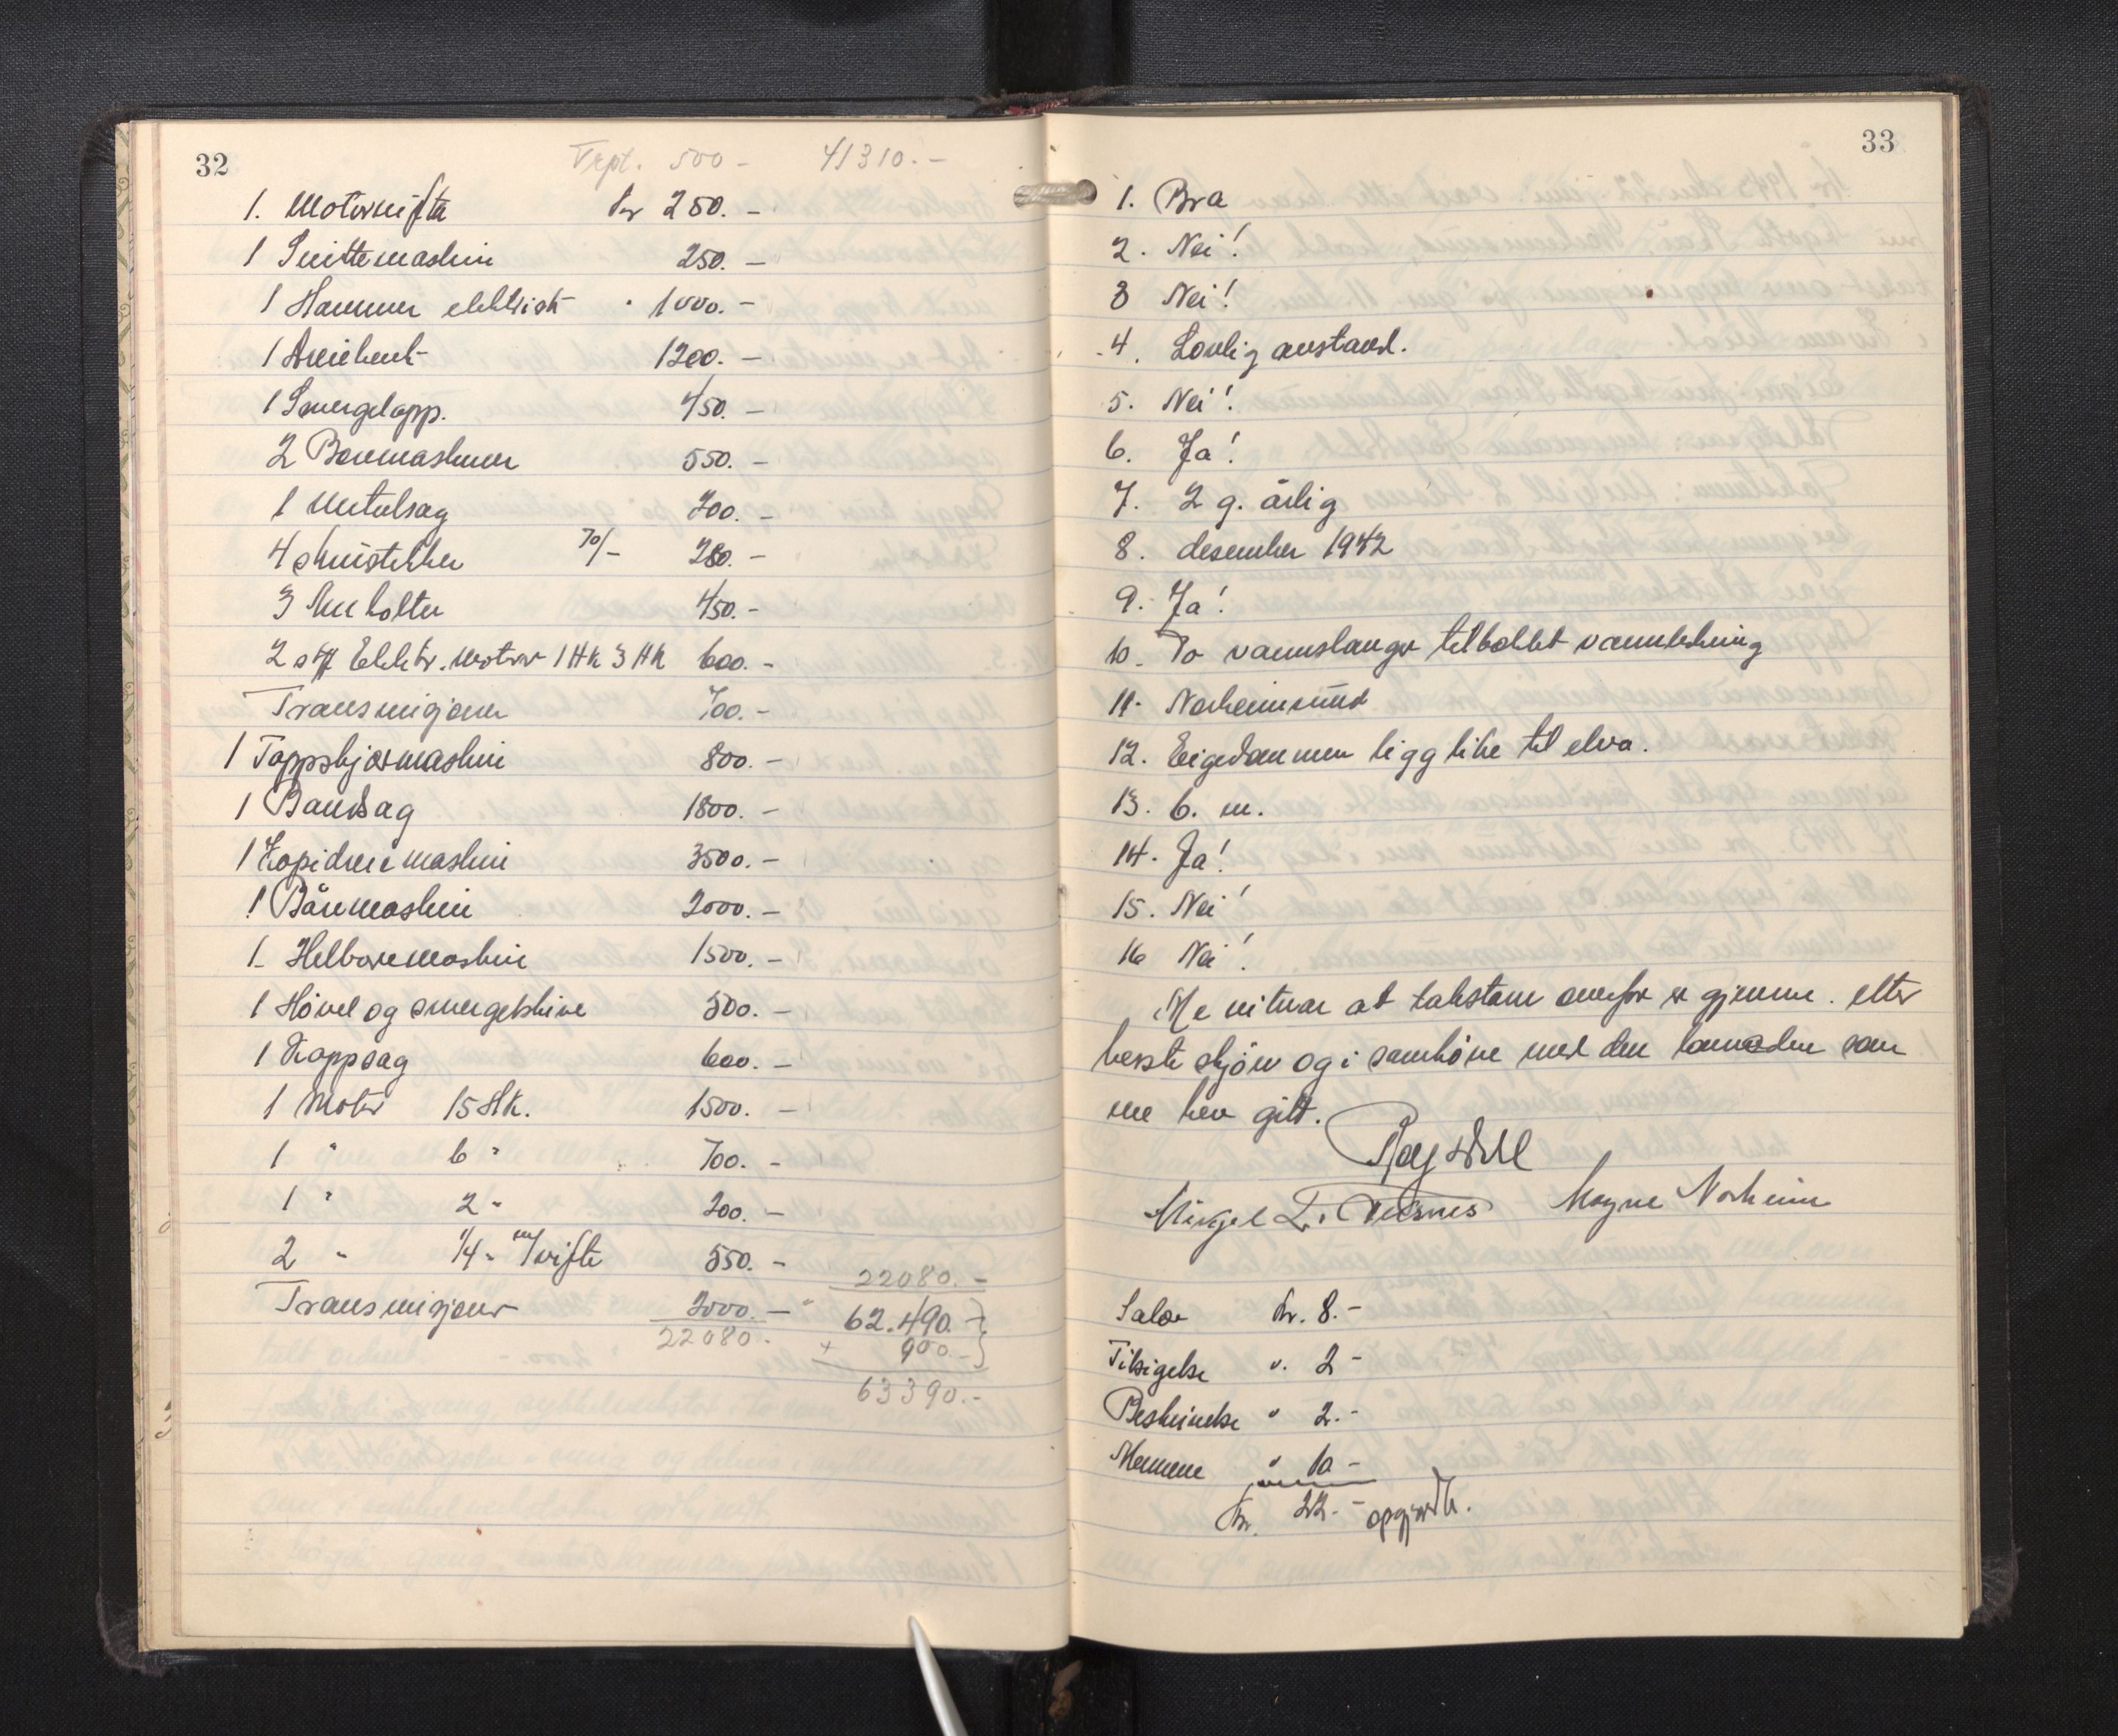 32
Trpt. 500 - 41310.-
1. Motorvifta kr 250.-
1 Snittemaskin 250.-
1 Hammer elektrisk " 1000.-
1 Dreiebenk 1200.-
1 Smergelapp. 450.-
2 Boremaskiner 550.-
1 Metalsag 200.-
4 skruistikker 70/- 280.-
3 450.-
2 stk Elektr. Motorer 1 HK 3 HK 600.-
Transmisjoner 700.-
1 Toppskjærmaskin 800.-
1 Bandsag 1800.-
1 Kopidreiemaskin 3500.-
1 Båremaskin 2000.-
1 Helboremaskin 1500.-
1 Hövel og smergelskive 500.-
1 Kappsag 600.-
1 Motor 15 HK. 1500.-
1 " 6 " 700.-
1 " 2 " 200.-
2 " 1/4 " m/vifte 550.- 22080.-
Transmisjoner 2000.- 62.490.-
22080.- + 900.-
63390.-
33
1. Bra
2. Nei!
3 Nei!
4. Lovlig avstand.
5. Nei!
6. Ja!
7. 2 g. årlig
8. desember 1942
9. Ja!
10. To vannslanger tilkoblet vannledning
11. Norheimsund
12. Eigedommen ligg like til elva.
13. 6. m.
14. Ja!
15. Nei!
16 Nei!
Me vitnar at takstane ovafor er gjenne. etter
beste skjön og i samhöve med den som
me hev gitt.
Mikjel L. Magne Norheim
Salær kr. 8.-
Tilsigelse " 2-
Beskrivelse " 2.-
Mennene " 10-
Kr. 22.- opgjordt.